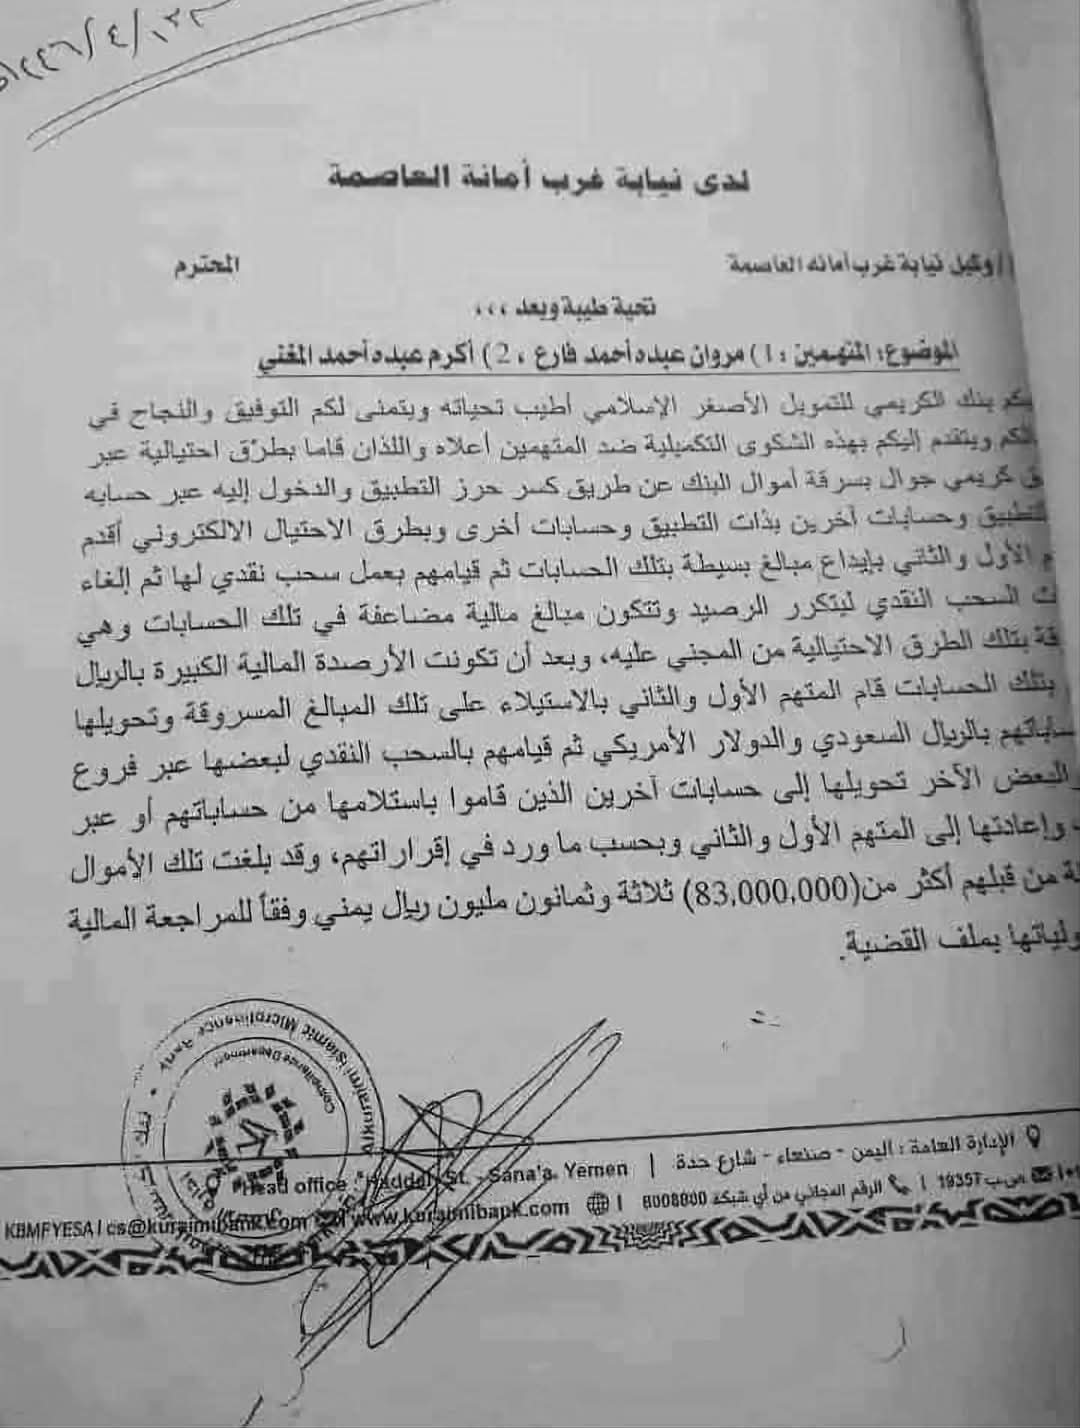 لدى نيابة غرب أمانة العاصمة
وكيل نيابة غرب أمانه العاصمة المحترم
تحية طيبة وبعد ،،،
الموضوع: المتهمين : 1) مروان عبده أحمد فارع ، 2) أكرم عبده أحمد المغني
بنك الكريمي للتمويل الأصغر الإسلامي أطيب تحياته ويتمنى لكم التوفيق والنجاح في
ويتقدم إليكم بهذه الشكوى التكميلية ضد المتهمين أعلاه واللذان قاما بطرق احتيالية عبر
كريمي جوال بسرقة أموال البنك عن طريق كسر حرز التطبيق والدخول إليه عبر حسابه
التطبيق وحسابات آخرين بذات التطبيق وحسابات أخرى وبطرق الاحتيال الالكتروني أقدم
الأول والثاني بإيداع مبالغ بسيطة بتلك الحسابات ثم قيامهم بعمل سحب نقدي لها ثم إلغاء
السحب النقدي ليتكرر الرصيد وتتكون مبالغ مالية مضاعفة في تلك الحسابات وهي
بتلك الطرق الاحتيالية من المجني عليه، وبعد أن تكونت الأرصدة المالية الكبيرة بالريال
بتلك الحسابات قام المتهم الأول والثاني بالاستيلاء على تلك المبالغ المسروقة وتحويلها
بالريال السعودي والدولار الأمريكي ثم قيامهم بالسحب النقدي لبعضها عبر فروع
والبعض الآخر تحويلها إلى حسابات آخرين الذين قاموا باستلامها من حساباتهم أو عبر
وإعادتها إلى المتهم الأول والثاني وبحسب ما ورد في إقراراتهم، وقد بلغت تلك الأموال
من قبلهم أكثر من(83,000,000) ثلاثة وثمانون مليون ريال يمني وفقاً للمراجعة المالية
بملف القضية.
Alkuraimi Islamic Microfinance Bank
Compliance Department
الإدارة العامة : اليمن - صنعاء - شارع حدة | Head office : Haddah St. - Sana'a. Yemen
ص.ب 19357 | الرقم المجاني من أي شبكة 8008800 | www.kuraimibank.com | cs@kuraimibank.com | KBMFYESA